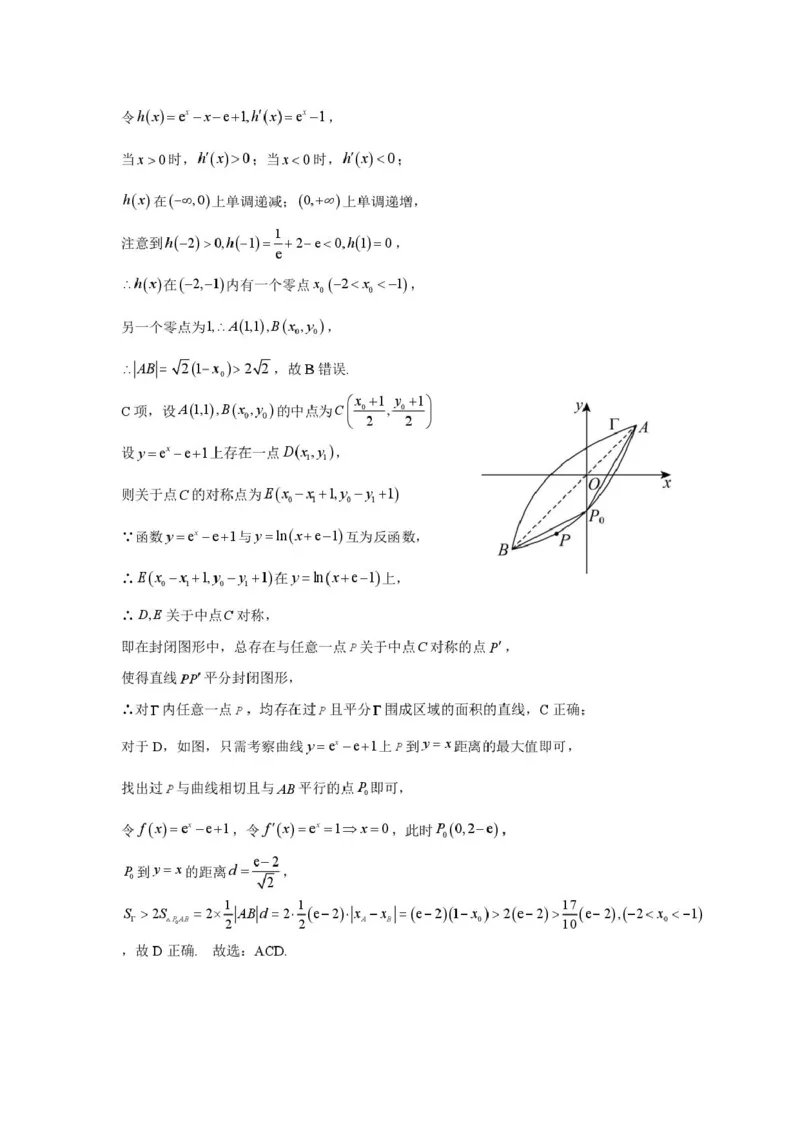 令h(x)=eˣ−x−e+1,h′(x)=eˣ−1，
当x>0时，h′(x)>0；当x<0时，h′(x)<0；
h(x)在(−∞,0)上单调递减；(0,+∞)上单调递增，
注意到h(−2)>0,h(−1)=1/e+2−e<0,h(1)=0，
∴h(x)在(−2,−1)内有一个零点x₀(−2<x₀<−1)，
另一个零点为1,∴A(1,1),B(x₀,y₀)，
∴|AB|=√2(1−x₀)>2√2，故B错误.
C项，设A(1,1),B(x₀,y₀)的中点为C((x₀+1)/2,(y₀+1)/2)
设y=eˣ−e+1上存在一点D(x₁,y₁)，
则关于点C的对称点为E(x₀−x₁+1,y₀−y₁+1)
∵函数y=eˣ−e+1与y=ln(x+e−1)互为反函数，
∴E(x₀−x₁+1,y₀−y₁+1)在y=ln(x+e−1)上，
∴D,E关于中点C对称，
即在封闭图形中，总存在与任意一点P关于中点C对称的点P′，
使得直线PP′平分封闭图形，
∴对Γ内任意一点P，均存在过P且平分Γ围成区域的面积的直线，C正确；
对于D，如图，只需考察曲线y=eˣ−e+1上P到y=x距离的最大值即可，
找出过P与曲线相切且与AB平行的点P₀即可，
令f(x)=eˣ−e+1，令f′(x)=eˣ=1⇒x=0，此时P₀(0,2−e)，
P₀到y=x的距离d=(e−2)/√2，
S_Γ>2S_△P₀AB=2×1/2|AB|d=2·1/2(e−2)·|x_A−x_B|=(e−2)(1−x₀)>2(e−2)>17/10(e−2),(−2<x₀<−1)
，故D正确. 故选：ACD.
y
Γ
A
O
x
P₀
P
B